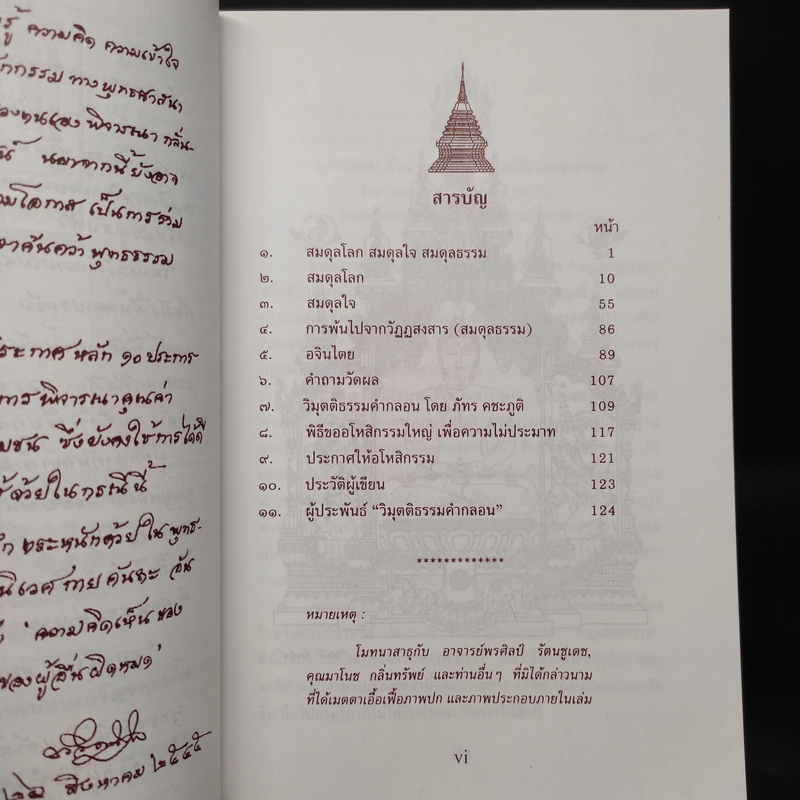 รู้ ความคิด ความเข้าใจ
กรรม ทางพุทธศาสนา
ของตนเอง พิจารณา กลั่น-
นอกจากนี้ยังอาจ
โอกาส เป็นการร่วม
ค้นคว้า พุทธธรรม
ประกาศ หลัก ๑๐ ประการ
การ พิจารณาคุณค่า
ซึ่งยังคงใช้การได้ดี
ด้วยในกรณีนี้
ตระหนักด้วยใน พุทธ-
อัน
' ความคิดเห็น ของ
ของผู้อื่นผิดหมด'
สิงหาคม ๒๕๔๕
สารบัญ
หน้า
๑. สมดุลโลก สมดุลใจ สมดุลธรรม 1
๒. สมดุลโลก 10
๓. สมดุลใจ 55
๔. การพ้นไปจากวัฏฏสงสาร (สมดุลธรรม) 86
๕. อจินไตย 89
๖. คำถามวัดผล 107
๗. วิมุตติธรรมคำกลอน โดย ภัทร คชะภูติ 109
๘. พิธีขออโหสิกรรมใหญ่ เพื่อความไม่ประมาท 117
๙. ประกาศให้อโหสิกรรม 121
๑๐. ประวัติผู้เขียน 123
๑๑. ผู้ประพันธ์ “วิมุตติธรรมคำกลอน” 124
*************
หมายเหตุ :
โมทนาสาธุกับ อาจารย์พรศิลป์ รัตนชูเดช,
คุณมาโนช กลิ่นทรัพย์ และท่านอื่นๆ ที่มิได้กล่าวนาม
ที่ได้เมตตาเอื้อเฟื้อภาพปก และภาพประกอบภายในเล่ม
vi